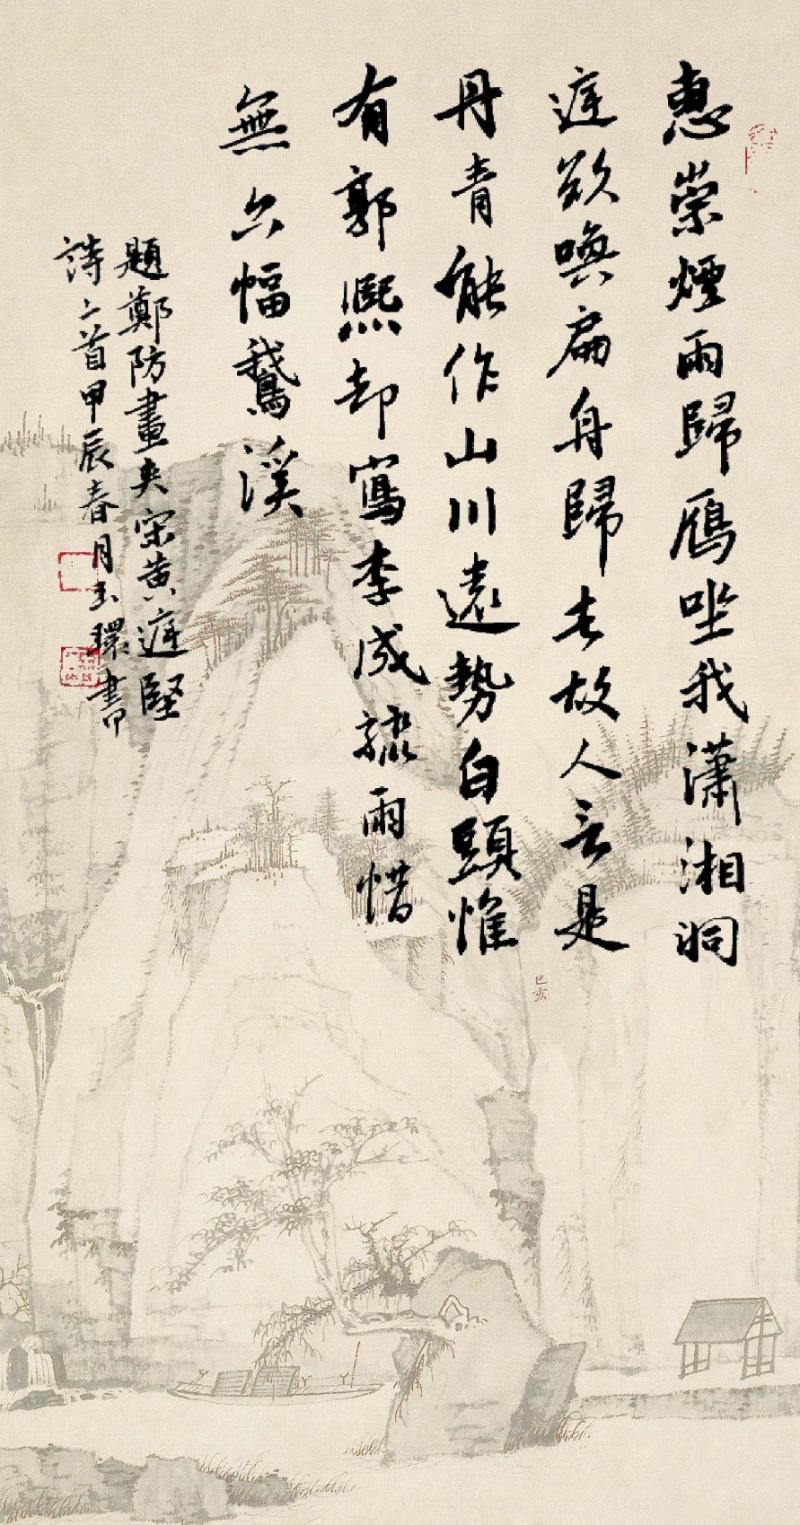 惠崇煙雨歸鴈坐我瀟湘洞
庭欲喚扁舟歸去故人言是
丹青能作山川遠勢白頭惟
有郭熙却寫李成驟雨惜
無六幅鵝溪
題鄭防畫夾宋黃庭堅
詩二首甲辰春月玉環書
己亥